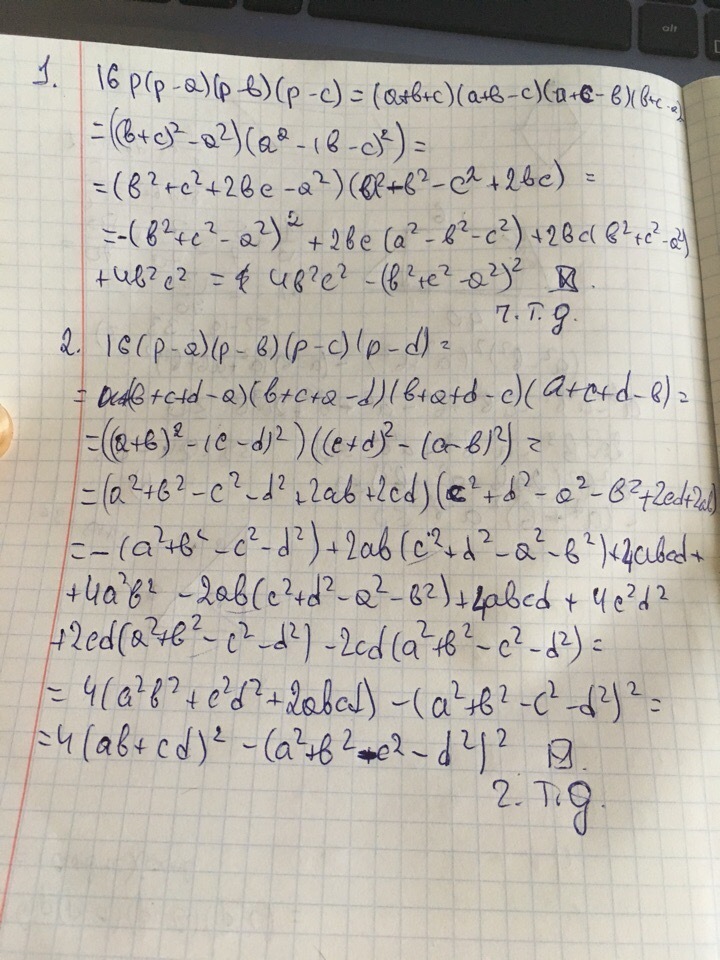 alt
1. 16 p(p-a)(p-в)(p-c) = (a+в+c)(a+в-c)(a+c-в)(в+c-a)
= ((в+c)² - a²)(a² - (в-c)²) =
= (в²+c²+2вc-a²)(a²-в²-c²+2вc) =
= -(в²+c²-a²)² + 2вc(a²-в²-c²) + 2вc(в²+c²-a²)
+4в²c² = 4в²c² - (в²+c²-a²)² ☒.
ч.т.д.
2. 16(p-a)(p-в)(p-c)(p-d) =
= (в+c+d-a)(в+c+a-d)(в+a+d-c)(a+c+d-в) =
= ((a+в)² - (c-d)²)((c+d)² - (a-в)²) =
= (a²+в²-c²-d²+2ab+2cd)(c²+d²-a²-в²+2cd+2ab)
= -(a²+в²-c²-d²) + 2ab(c²+d²-a²-в²) + 4abcd +
+4a²в² - 2ab(c²+d²-a²-в²) + 4abcd + 4c²d²
+2cd(a²+в²-c²-d²) - 2cd(a²+в²-c²-d²) =
= 4(a²в²+c²d²+2abcd) - (a²+в²-c²-d²)² =
= 4(ab+cd)² - (a²+в²-c²-d²)² ☒.
ч.т.д.